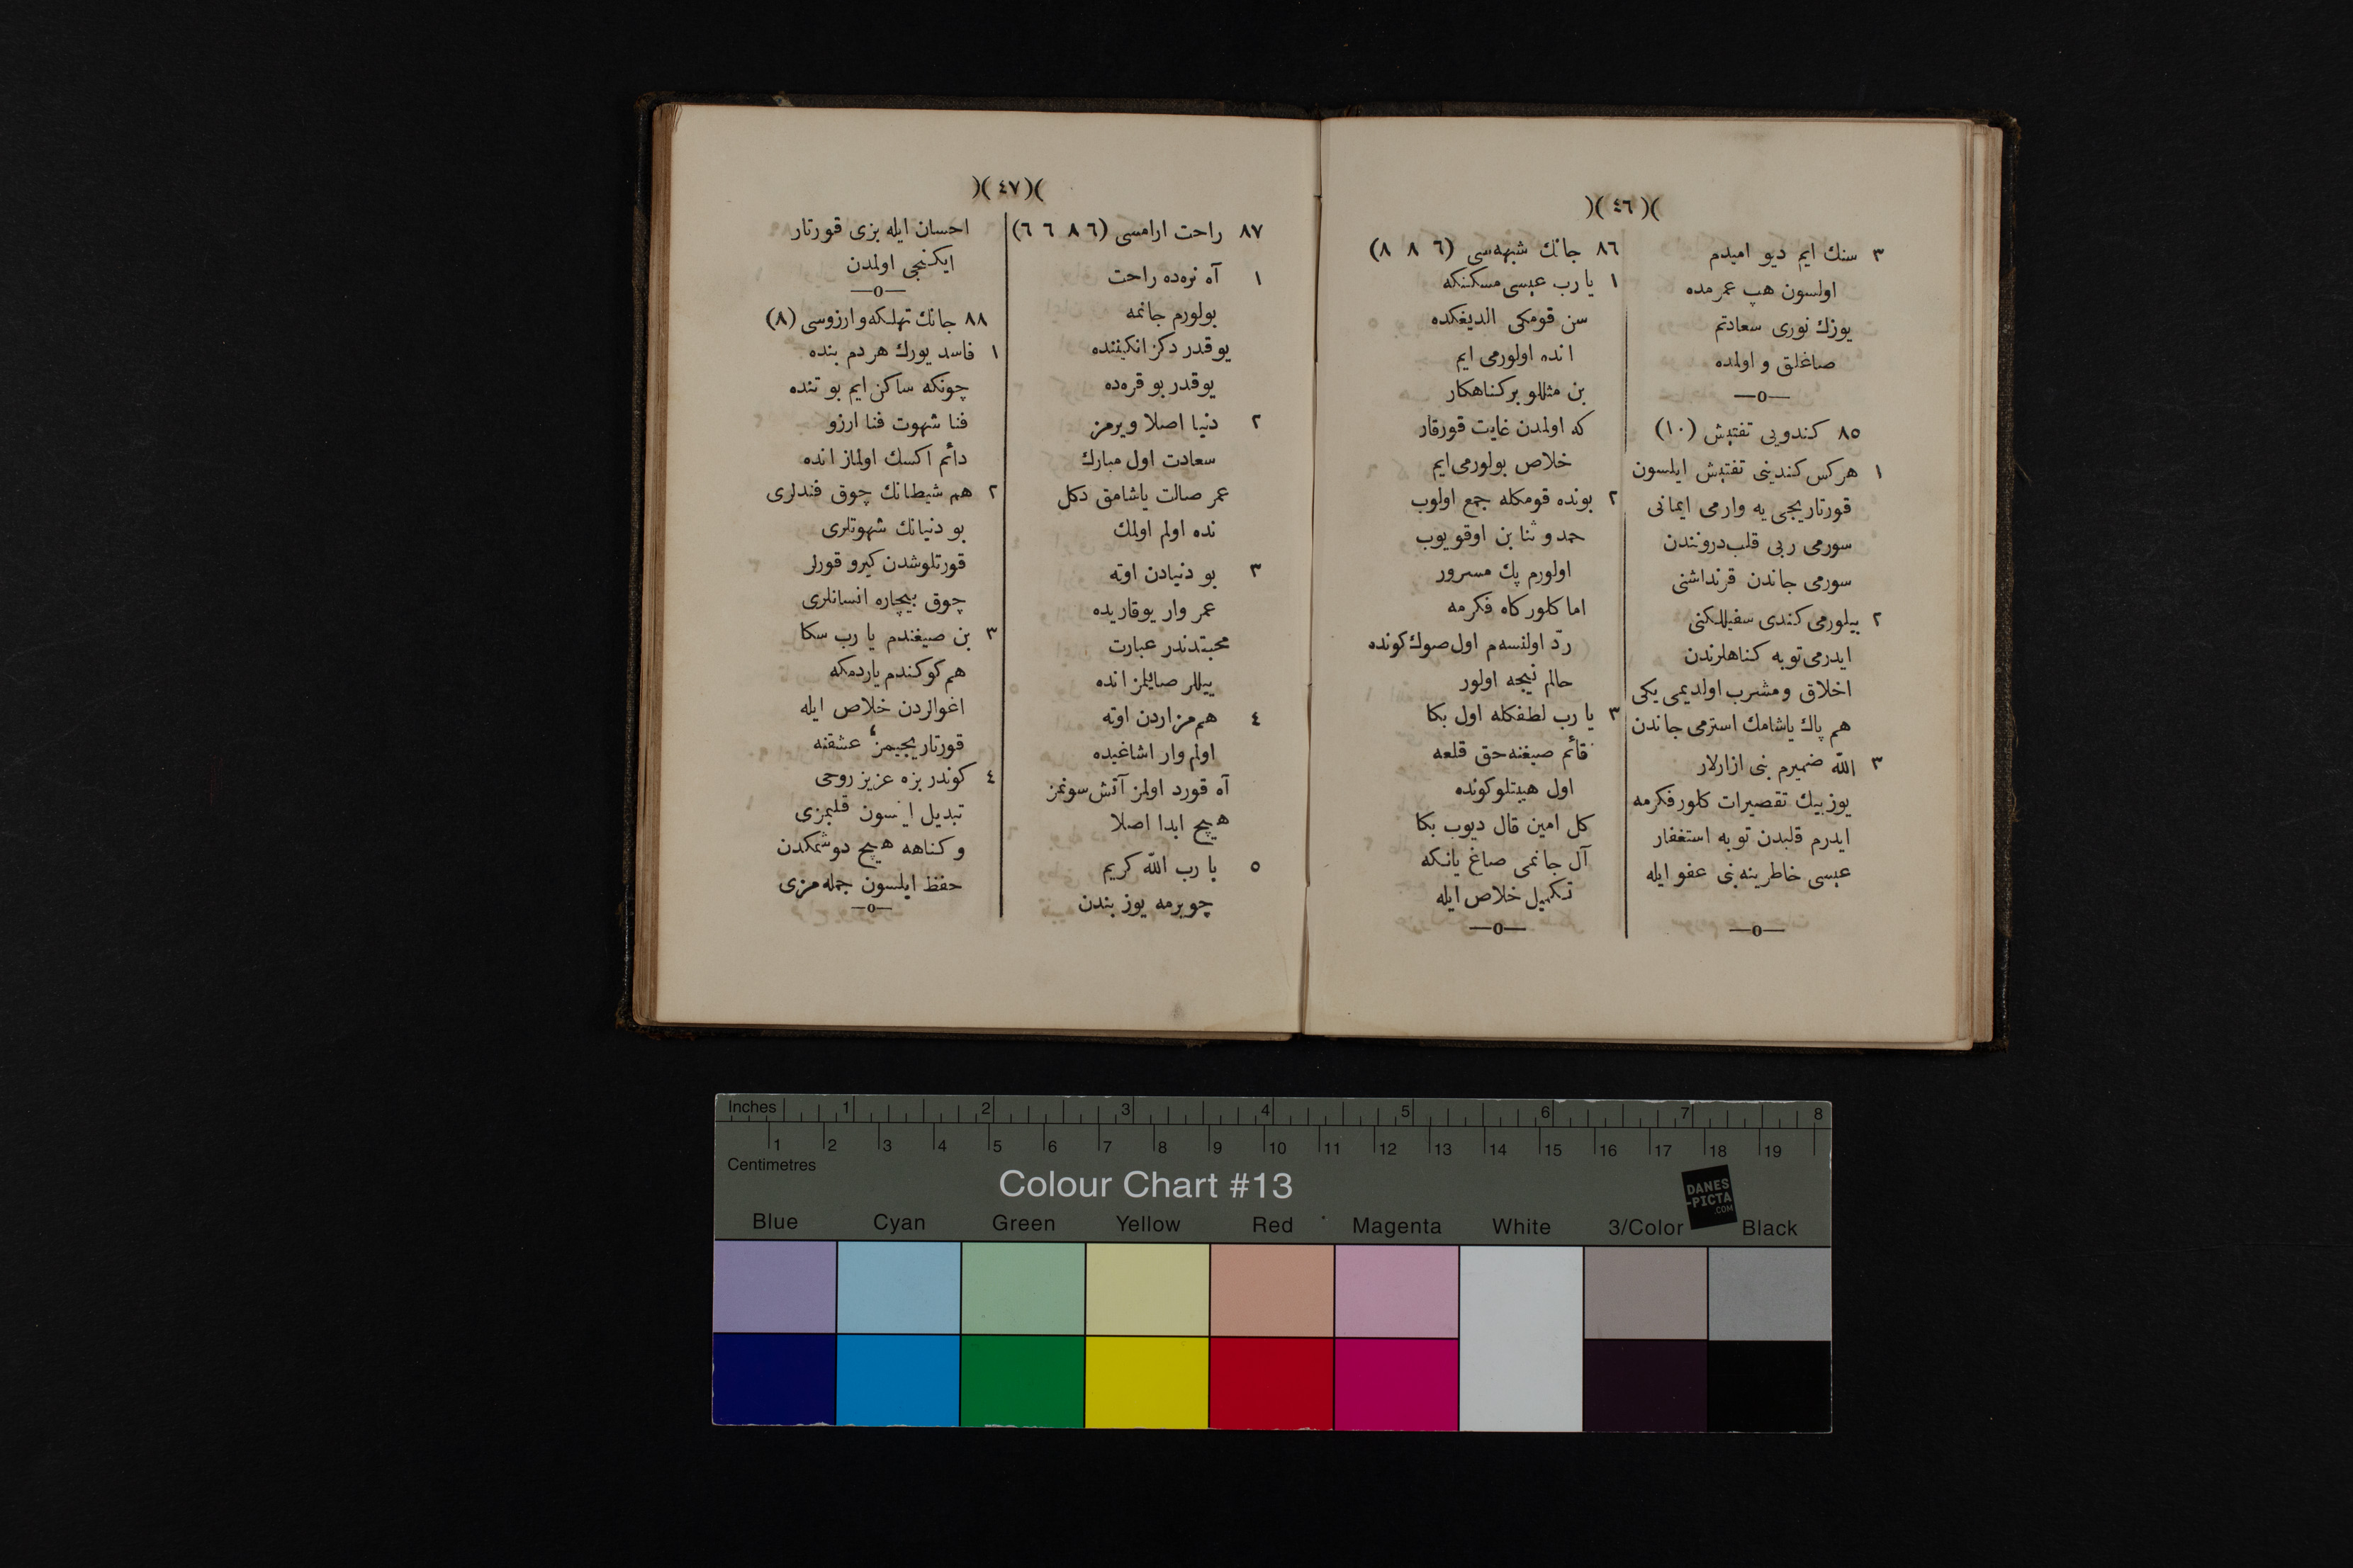 )( ٤٦ )(
٣ سنك ايم ديو اميدم
اولسون هپ عمرمده
يوزك نورى سعادتم
صاغلق و اولمده
—o—
٨٥ كندويى تفتيش (١٠)
١ هركس كندينى تفتيش ايلسون
قورتاريجى يه وارمى ايمانى
سورمى ربى قلب درونندن
سورمى جاندن قرنداشنى
٢ بيلورمى كندى سفيللكنى
ايدرمى توبه كناهلرندن
اخلاق ومشرب اولديمى يكى
هم پاك ياشامك استرمى جاندن
٣ الله ضميرم بنى ازارلار
يوز بيك تقصيرات كلور فكرمه
ايدرم قلبدن توبه استغفار
عيسى خاطرينه بنى عفو ايله
—o—
٨٦ جانك شبهه‌سى (٦ ٨ ٨)
١ يا رب عيسى مسكننكه
سن قومكى الديغكده
انده اولورمى ايم
بن مثللو بر كناهكار
كه اولمدن غايت قورقار
خلاص بولورمى ايم
٢ بونده قومكله جمع اولوب
حمد و ثنا بن اوقويوب
اولورم پك مسرور
اما كلور كاه فكرمه
ردّ اولنسه‌م اول صوك كونده
حالم نيجه اولور
٣ يا رب لطفكله اول بكا
قائم صيغنه‌جق قلعه
اول هيبتلو كونده
كل امين قال ديوب بكا
آل جانمى صاغ يانكه
تكميل خلاص ايله
—o—
)( ٤٧ )(
٨٧ راحت ارامسى (٦ ٨ ٦ ٦)
١ آه نره‌ده راحت
بولورم جانمه
يوقدر دكز انكيننده
يوقدر بو قره‌ده
٢ دنيا اصلا ويرمز
سعادت اول مبارك
عمر صالت ياشامق دكل
نده اولم اولمك
٣ بو دنيادن اوته
عمر وار يوقاريده
محبتدندر عبارت
ييللر صايلمز انده
٤ هم مزاردن اوته
اولم وار اشاغيده
آه قورد اولمز آتش سونمز
هيچ ابدا اصلا
٥ يا رب الله كريم
چويرمه يوز بندن
احسان ايله بزى قورتار
ايكنجى اولمدن
—o—
٨٨ جانك تهلكه و ارزوسى (٨)
١ فاسد يورك هر دم بنده
چونكه ساكن ايم بو تنده
فنا شهوت فنا ارزو
دائم اكسك اولماز انده
٢ هم شيطانك چوق فندلرى
بو دنيانك شهوتلرى
قورتلوشدن كيرو قورلر
چوق بيچاره انسانلرى
٣ بن صيغندم يا رب سكا
هم كوكندم ياردمكه
اغوالردن خلاص ايله
قورتاريجيمز عشقنه
٤ كوندر بزه عزيز روحى
تبديل ايتسون قلبمزى
وكناهه هيچ دوشمكدن
حفظ ايلسون جمله‌مزى
—o—
Inches 1 2 3 4 5 6 7 8
1 2 3 4 5 6 7 8 9 10 11 12 13 14 15 16 17 18 19
Centimetres
Colour Chart #13
DANES
-PICTA
.COM
Blue Cyan Green Yellow Red Magenta White 3/Color Black